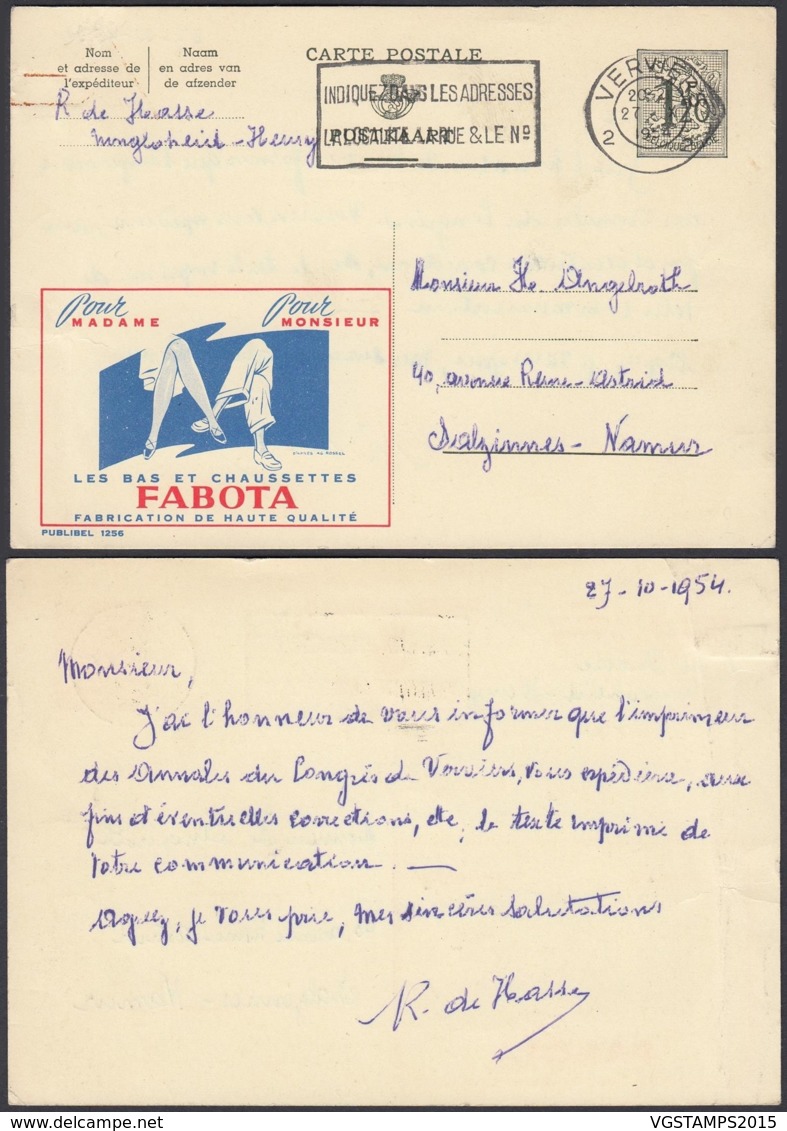 Nom
et adresse de
l'expéditeur
Naam
en adres van
de afzender
CARTE POSTALE
POSTKAART
INDIQUEZ DANS LES ADRESSES
LA LOCALITE LA RUE & LE No
VERVIERS
2
27
1F20
BELGIQUE-BELGIE
R de Hasse
Monsieur
40, avenue Reine-Astrid
Salzinnes-Namur
Pour
MADAME
Pour
MONSIEUR
LES BAS ET CHAUSSETTES
FABOTA
FABRICATION DE HAUTE QUALITÉ
PUBLIBEL 1256
27-10-1954.
Monsieur,
J'ai l'honneur de vous informer que l'imprimeur
des Annales du Congrès de Verviers, vous expédiera, aux
fins d'éventuelles corrections, etc, le texte imprimé de
votre communication. —
Agréez, je vous prie, mes sincères salutations
R. de Hasse
VGSTAMPS2015